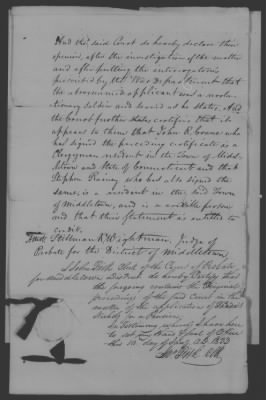 And the said Court do hereby declare their
opinion, after the investigation of the matter
and after putting the interrogatories
prescribed by the War Department that
the above named applicant was a revolu-
tionary soldier and served as he states. And
the Court further states certifies that it
appears to them that John R. Crane who
has signed the preceding certificate is a
Clergyman resident in the Town of Midd-
letown and State of Connecticut and that
Stephen who has also signed the
same, is a resident in the said Town
of Middletown, and is a credible person
and that their statement is entitled to
credit.
Stillman K. Wightman, Judge of
Probate for the District of Middletown,
I John Fisk Clerk of the Court of Probate
for Middletown District do hereby certify that
the foregoing contains the Original
proceedings of the said Court in the
matter of the application of
for a Pension
In Testimony whereof I have here
unto set my hand & seal of Office
this 10 day of 1833
Jno Fisk Clk